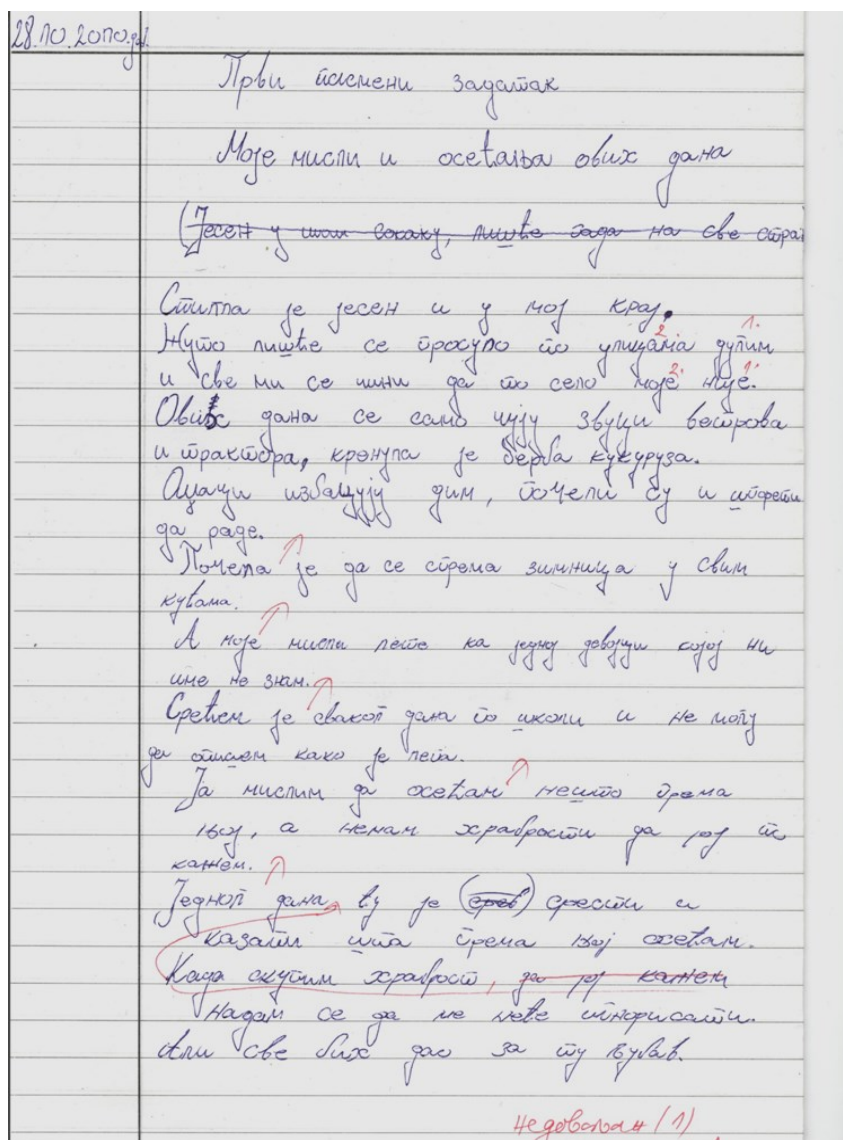 28.10.2010.год.
Први писмени задатак
Моје мисли и осећања ових дана
(Јесен у мом сокаку, лишће пада на све стра
Стигла је јесен и у мој крај.
2. 1.
Жуто лишће се просуло по улицама дугим
2. 1.
и све ми се чини да то село моје није.
Ових дана се само чују звуци ветрова
и трактора, кренула је берба кукуруза.
Оџаци избацују дим, почели су и шпорети
да раде.
Почела је да се спрема зимница у свим
кућама.
А моје мисли лете ка једној девојци којој ни
име не знам.
Срећем је сваког дана по школи и не могу
да опишем како је лепа.
Ја мислим да осећам нешто према
њој, а немам храбрости да јој то
кажем.
Једног дана ћу је (срев) срести и
казати шта према њој осећам.
Када скупим храброст, да јој кажем
Надам се да ме неће игнорисати.
Али све бих дао за ту љубав.
Недовољан (1)